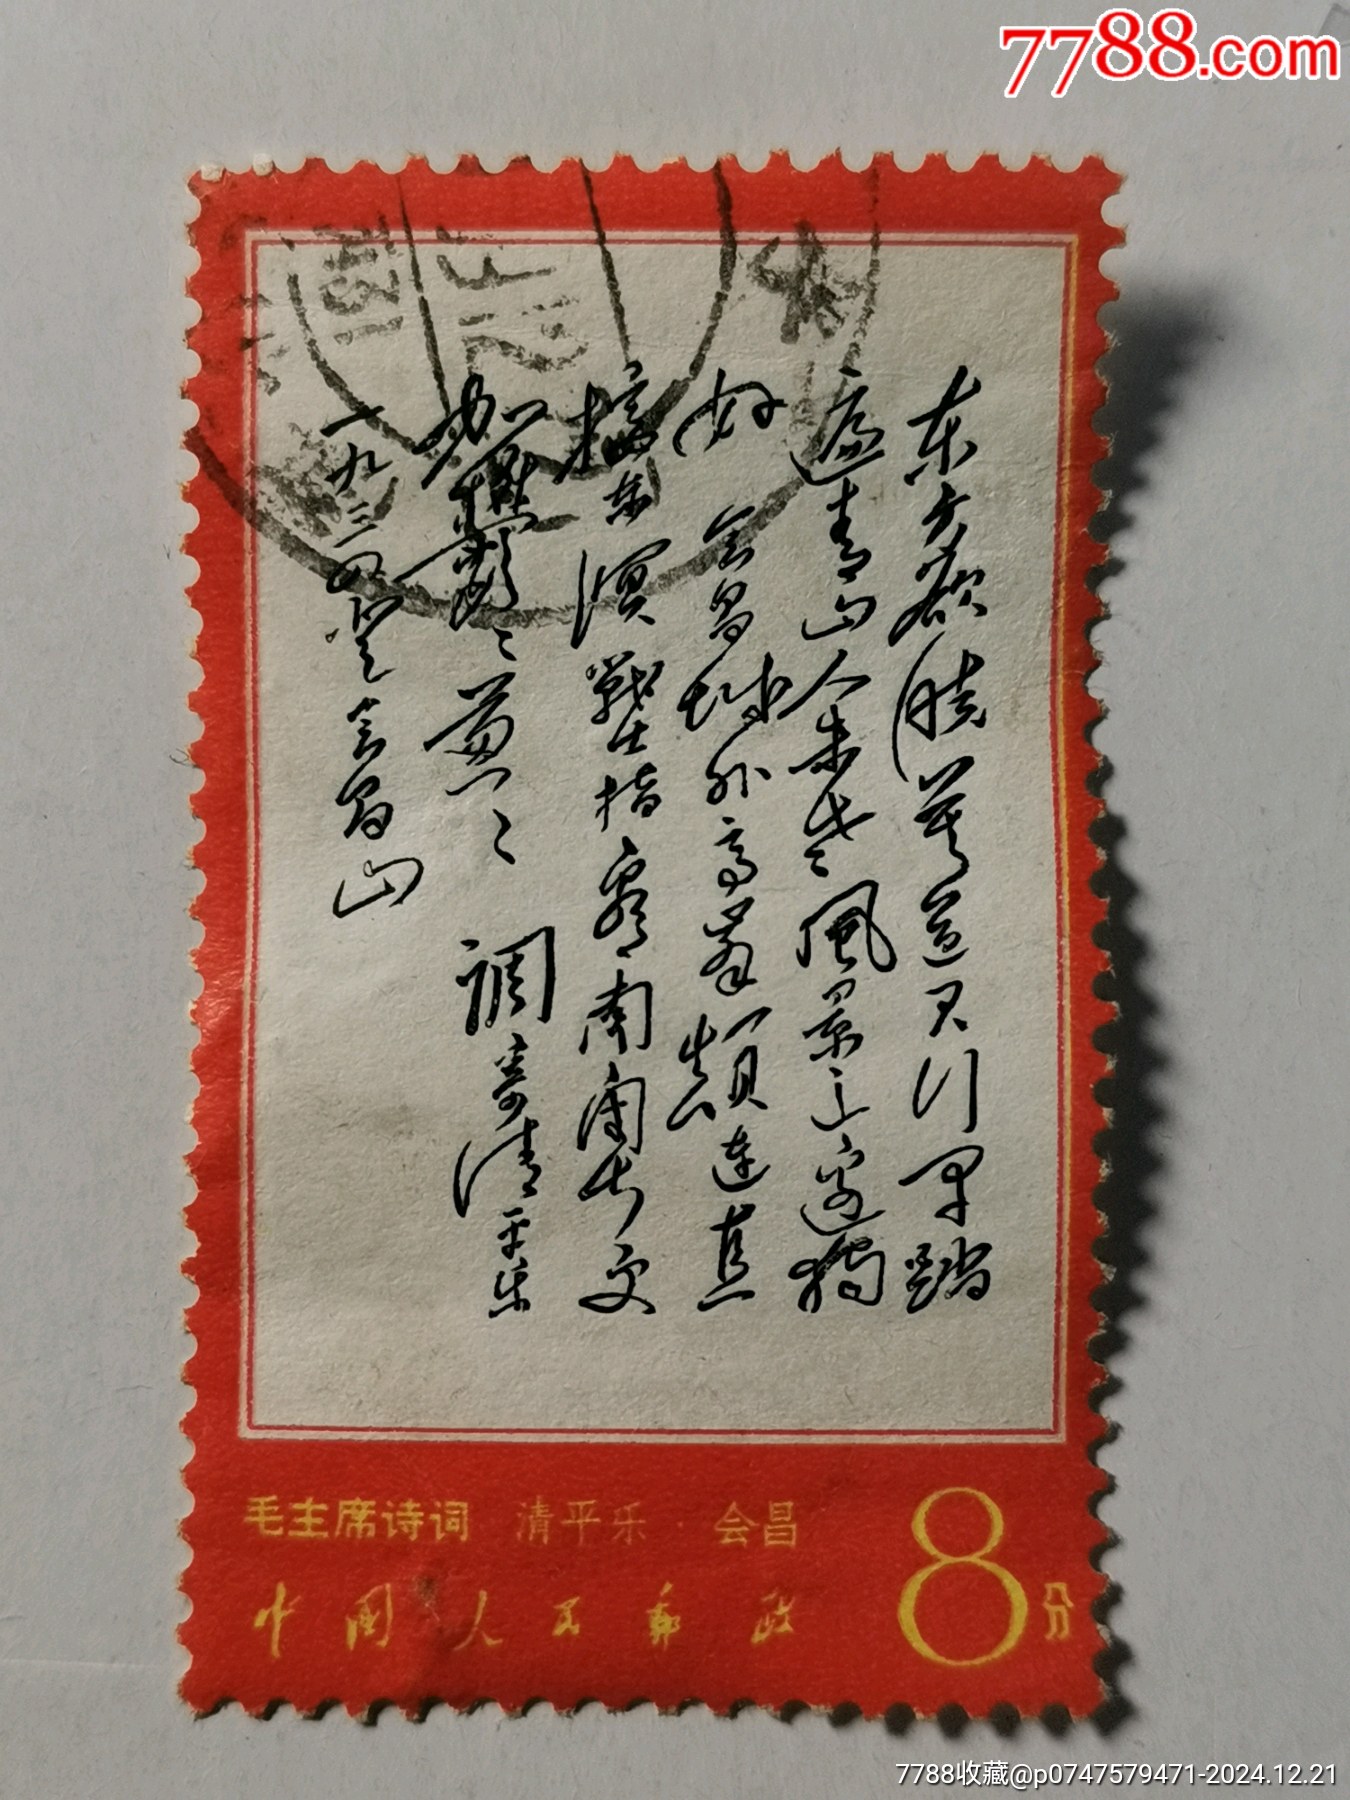 7788.com
东方欲晓莫道君行早踏
遍青山人未老風景这边獨
好 会昌城外高峯颠连直
接东溟戰士指看南粤更
加鬱々葱々 調寄清平乐
一九三四登会昌山
毛主席诗词 清平乐·会昌
中国人民邮政
8分
7788收藏@p0747579471-2024.12.21